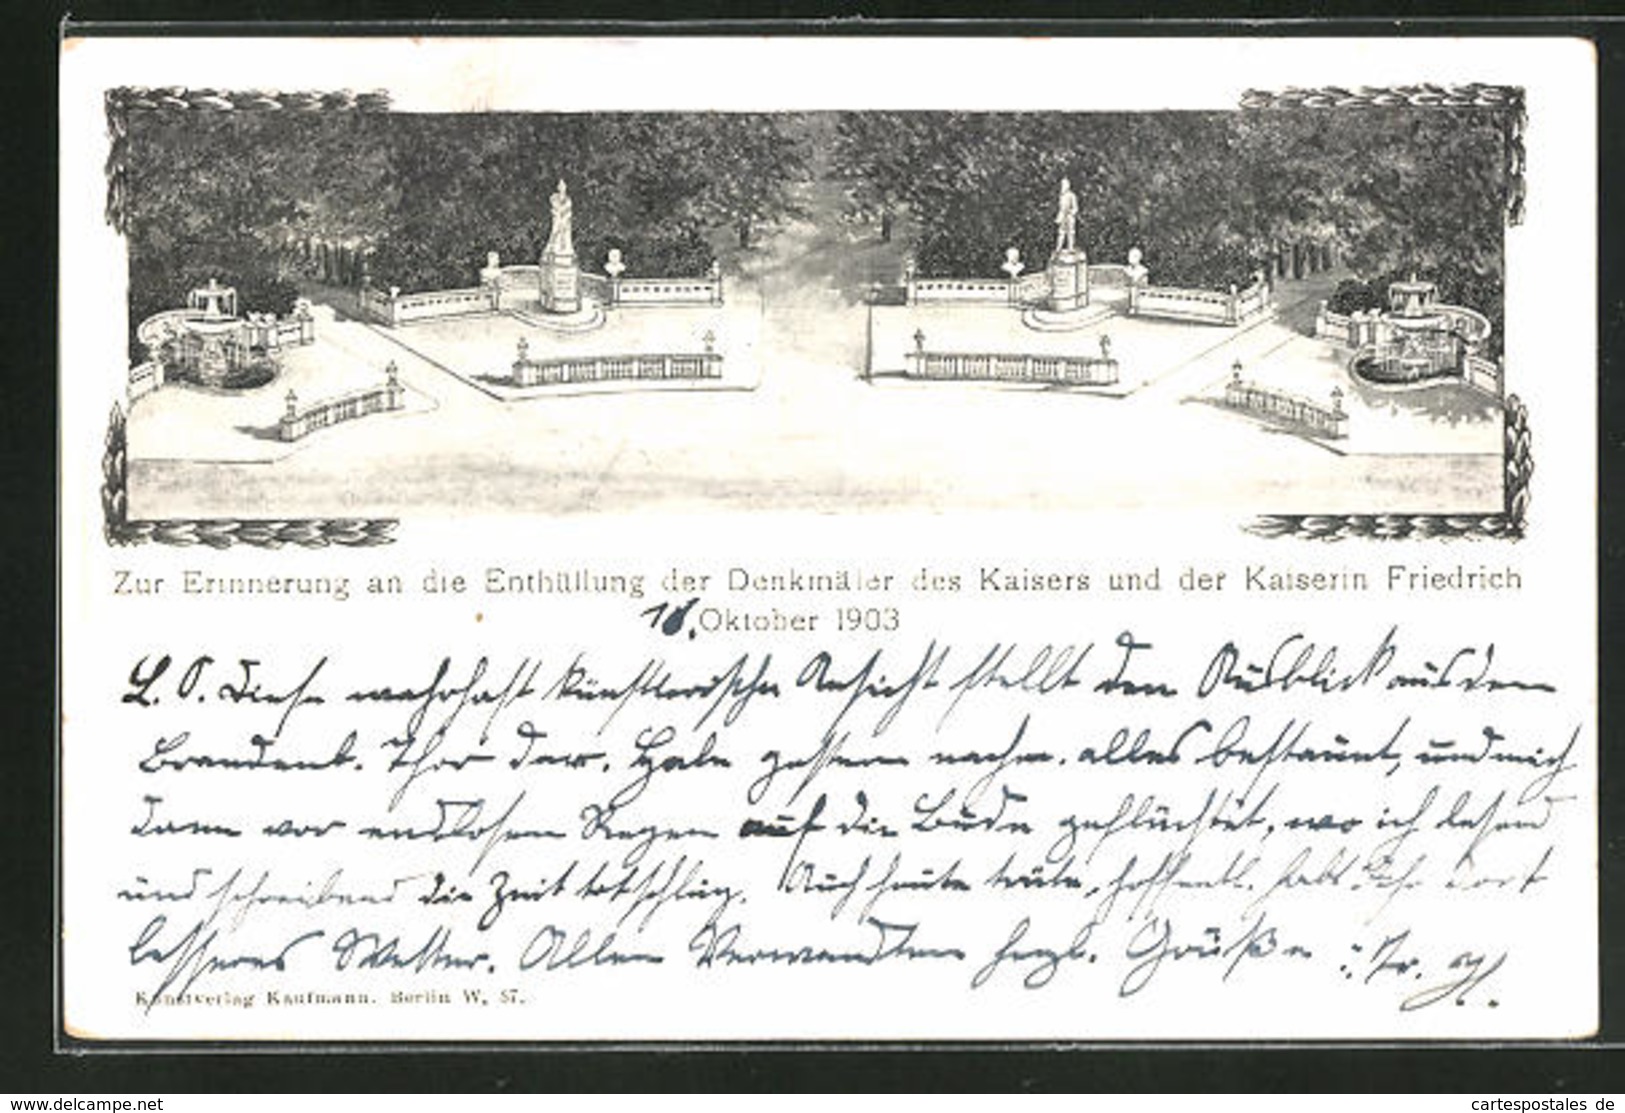 Zur Erinnerung an die Enthüllung der Denkmäler des Kaisers und der Kaiserin Friedrich
18. Oktober 1903
L. O. Diese wahrhaft künstlerische Ansicht stellt den Ausblick aus dem
Brandenb. Thor dar. Habe gestern nachm. alles bestaunt, und mich
dann vor endlosem Regen auf die Bude geflüchtet, wo ich lesend
und schreibend die Zeit totschlug. Auch heute trübe, hoffentl. habt Ihr dort
besseres Wetter. Allen Verwandten herzl. Grüße
Kunstverlag Kaufmann. Berlin W. 57.
www.delcampe.net
cartespostales de